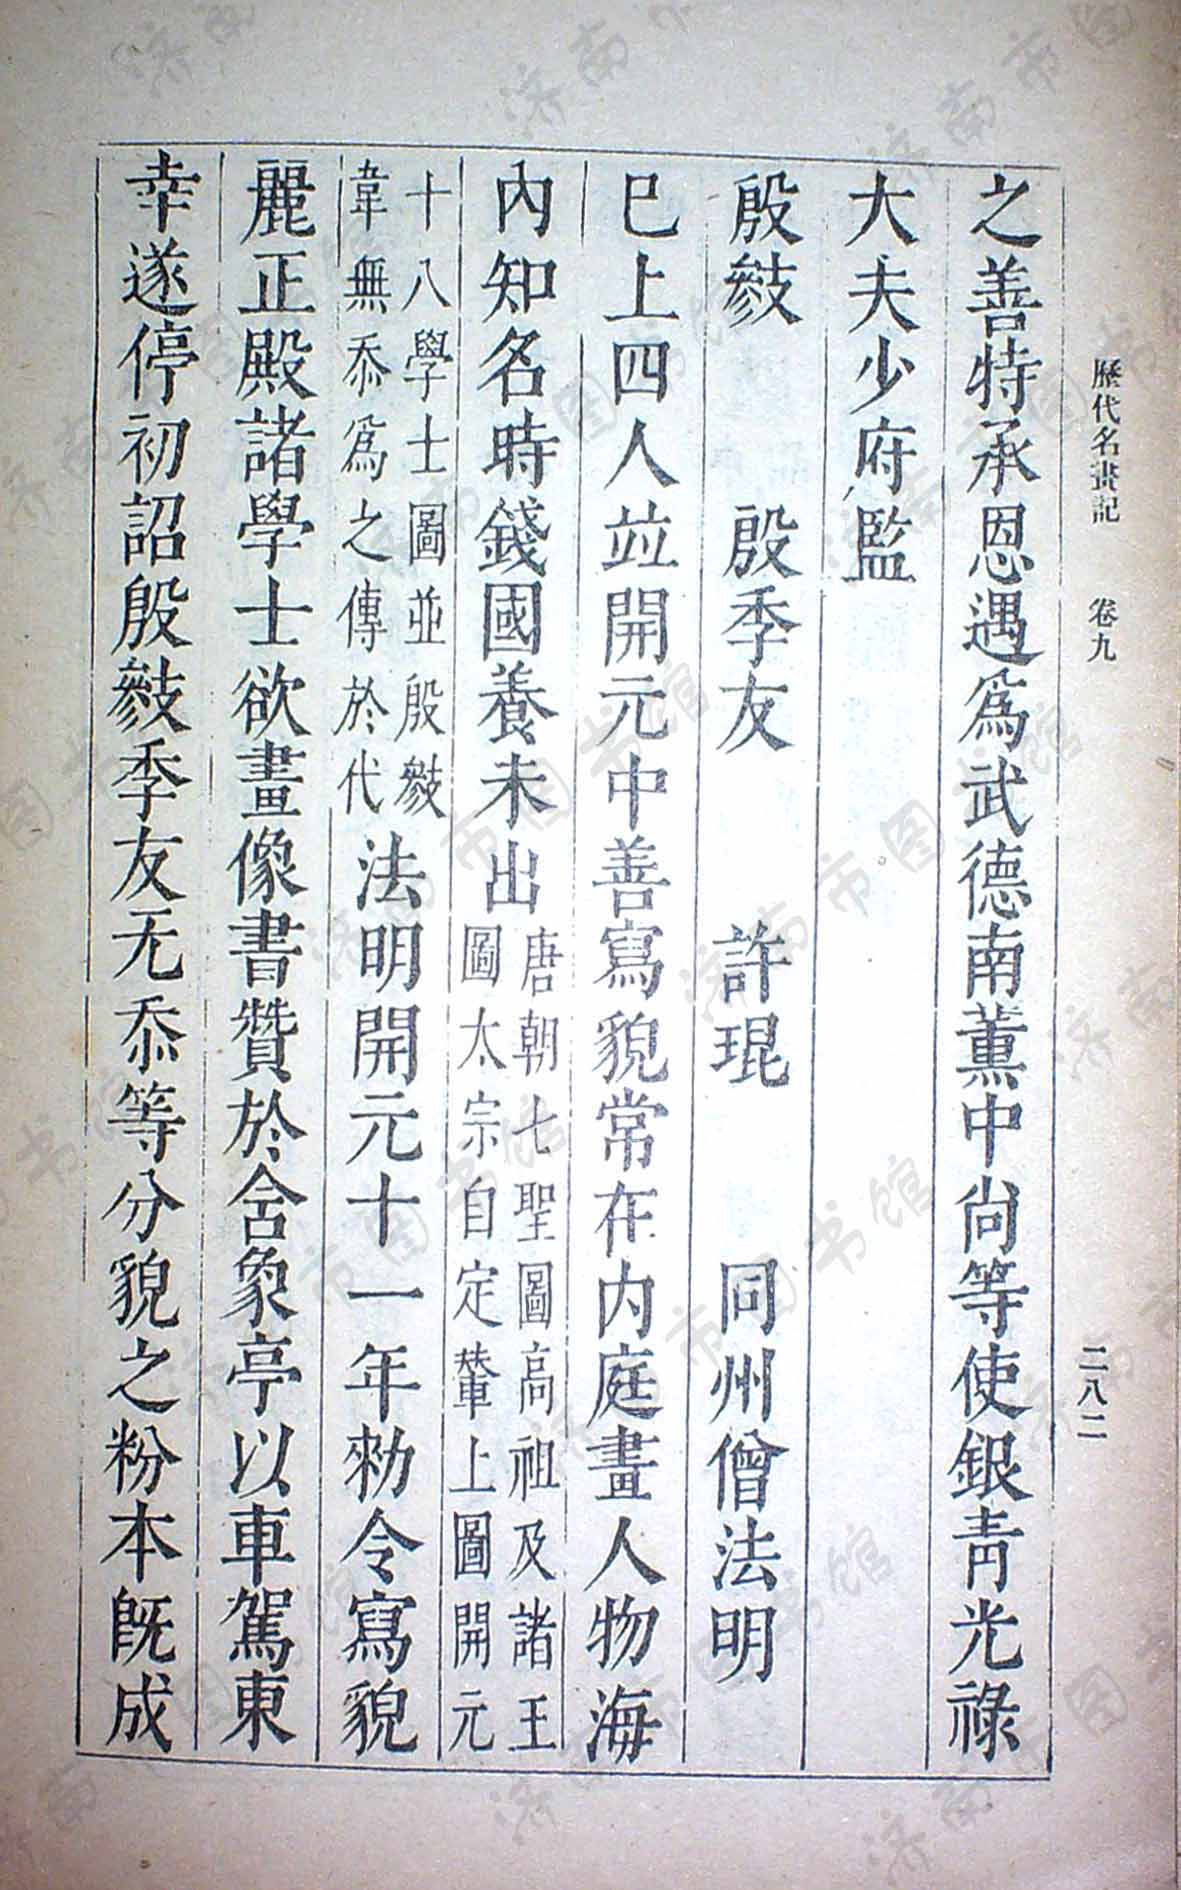 歷代名畫記　卷九　二八二
之善特承恩遇爲武德南薰中尚等使銀靑光祿
大夫少府監
殷　殷季友　許琨　同州僧法明
巳上四人竝開元中善寫貌常在内庭畫人物海
内知名時錢國養未出
唐朝七聖圖高祖及諸王
圖太宗自定輦上圖開元
十八學士圖並殷
韋無忝爲之傳於代
法明開元十一年勑令寫貌
麗正殿諸學士欲畫像書贊於含象亭以車駕東
幸遂停初詔殷季友无忝等分貌之粉本旣成
济南市图书馆